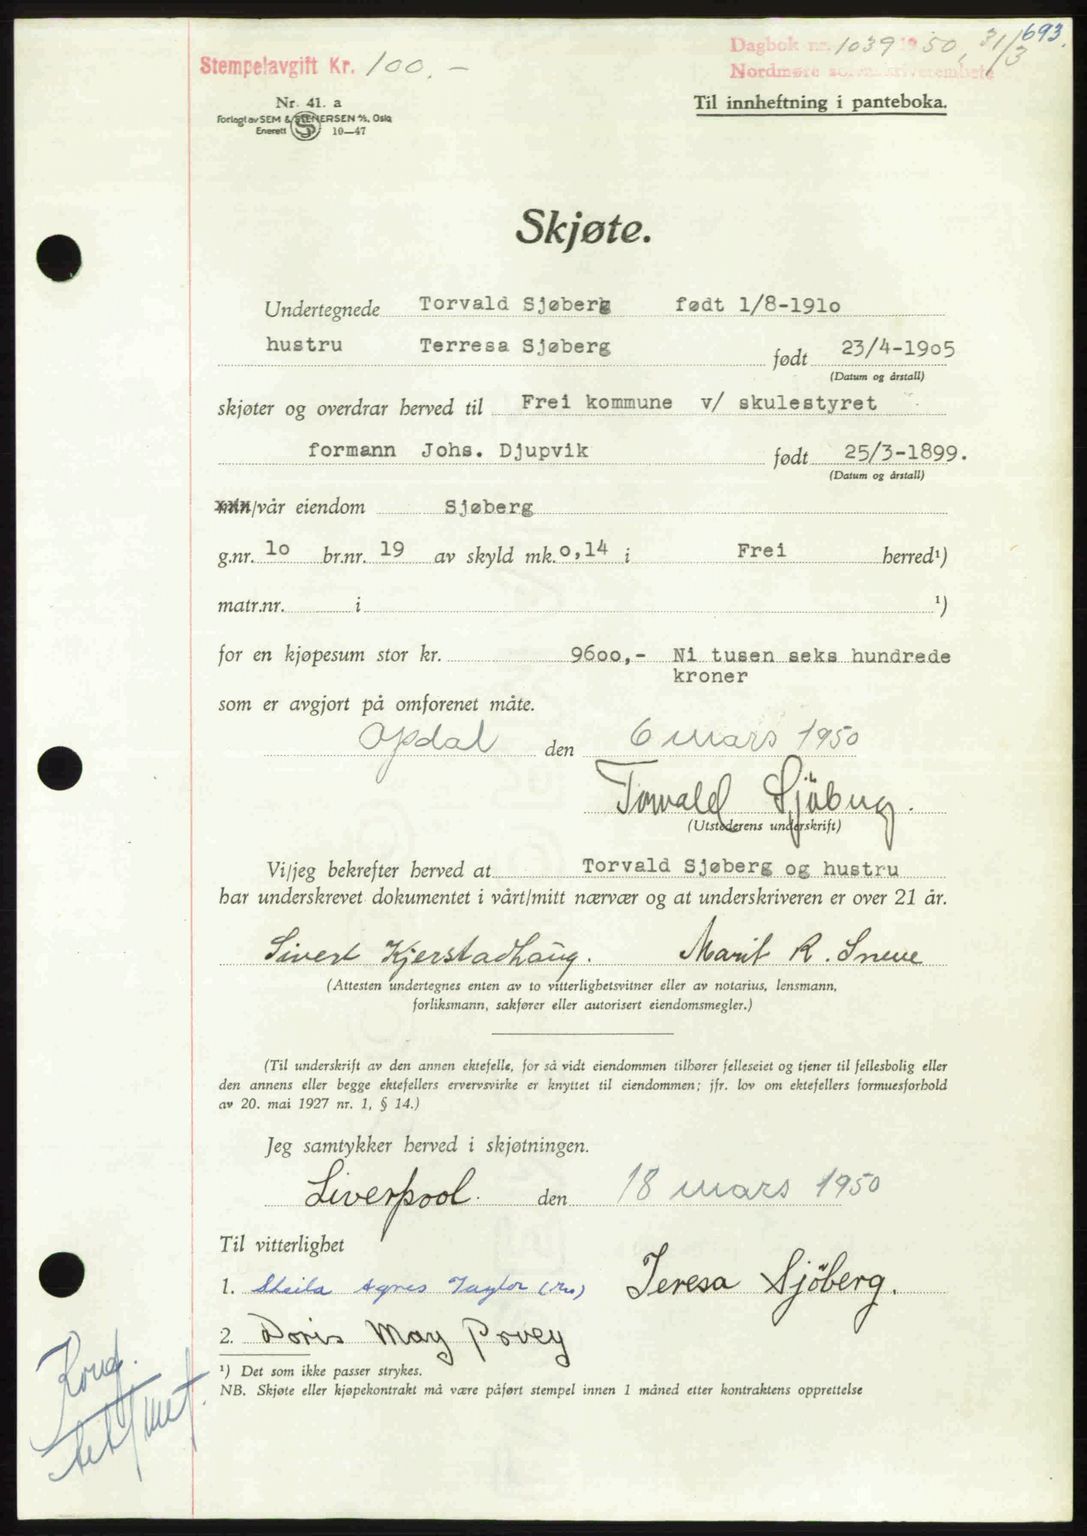 693.
Dagbok nr. 1039 1950, 31/3
Nordmøre sorenskriverembete
Stempelavgift Kr. 100.-
Nr. 41. a
Forlagt av SEM & STENERSEN A/S, Oslo
Enerett S 10—47
Til innheftning i panteboka.
Skjøte.
Undertegnede Torvald Sjøberg født 1/8-1910
hustru Terresa Sjøberg født 23/4-1905
(Datum og årstall)
skjøter og overdrar herved til Frei kommune v/ skulestyret
formann Johs. Djupvik født 25/3-1899.
(Datum og årstall)
min/vår eiendom Sjøberg
g.nr. 10 br.nr. 19 av skyld mk. 0,14 i Frei herred¹)
matr.nr. i ¹)
for en kjøpesum stor kr. 9600,- Ni tusen seks hundrede
kroner
som er avgjort på omforenet måte.
Opdal den 6 mars 1950
Torvald Sjöberg.
(Utstederens underskrift)
Vi/jeg bekrefter herved at Torvald Sjøberg og hustru
har underskrevet dokumentet i vårt/mitt nærvær og at underskriveren er over 21 år.
Sivert Kjerstadhaug. Marit R. Sneve
(Attesten undertegnes enten av to vitterlighetsvitner eller av notarius, lensmann,
forliksmann, sakfører eller autorisert eiendomsmegler.)
(Til underskrift av den annen ektefelle, for så vidt eiendommen tilhører felleseiet og tjener til fellesbolig eller
den annens eller begge ektefellers ervervsvirke er knyttet til eiendommen; jfr. lov om ektefellers formuesforhold
av 20. mai 1927 nr. 1, § 14.)
Jeg samtykker herved i skjøtningen.
Liverpool. den 18 mars 1950
Til vitterlighet
1. Sheila Agnes Taylor (Mrs) Teresa Sjöberg.
2. Doris May Povey
¹) Det som ikke passer strykes.
NB. Skjøte eller kjøpekontrakt må være påført stempel innen 1 måned etter kontraktens opprettelse